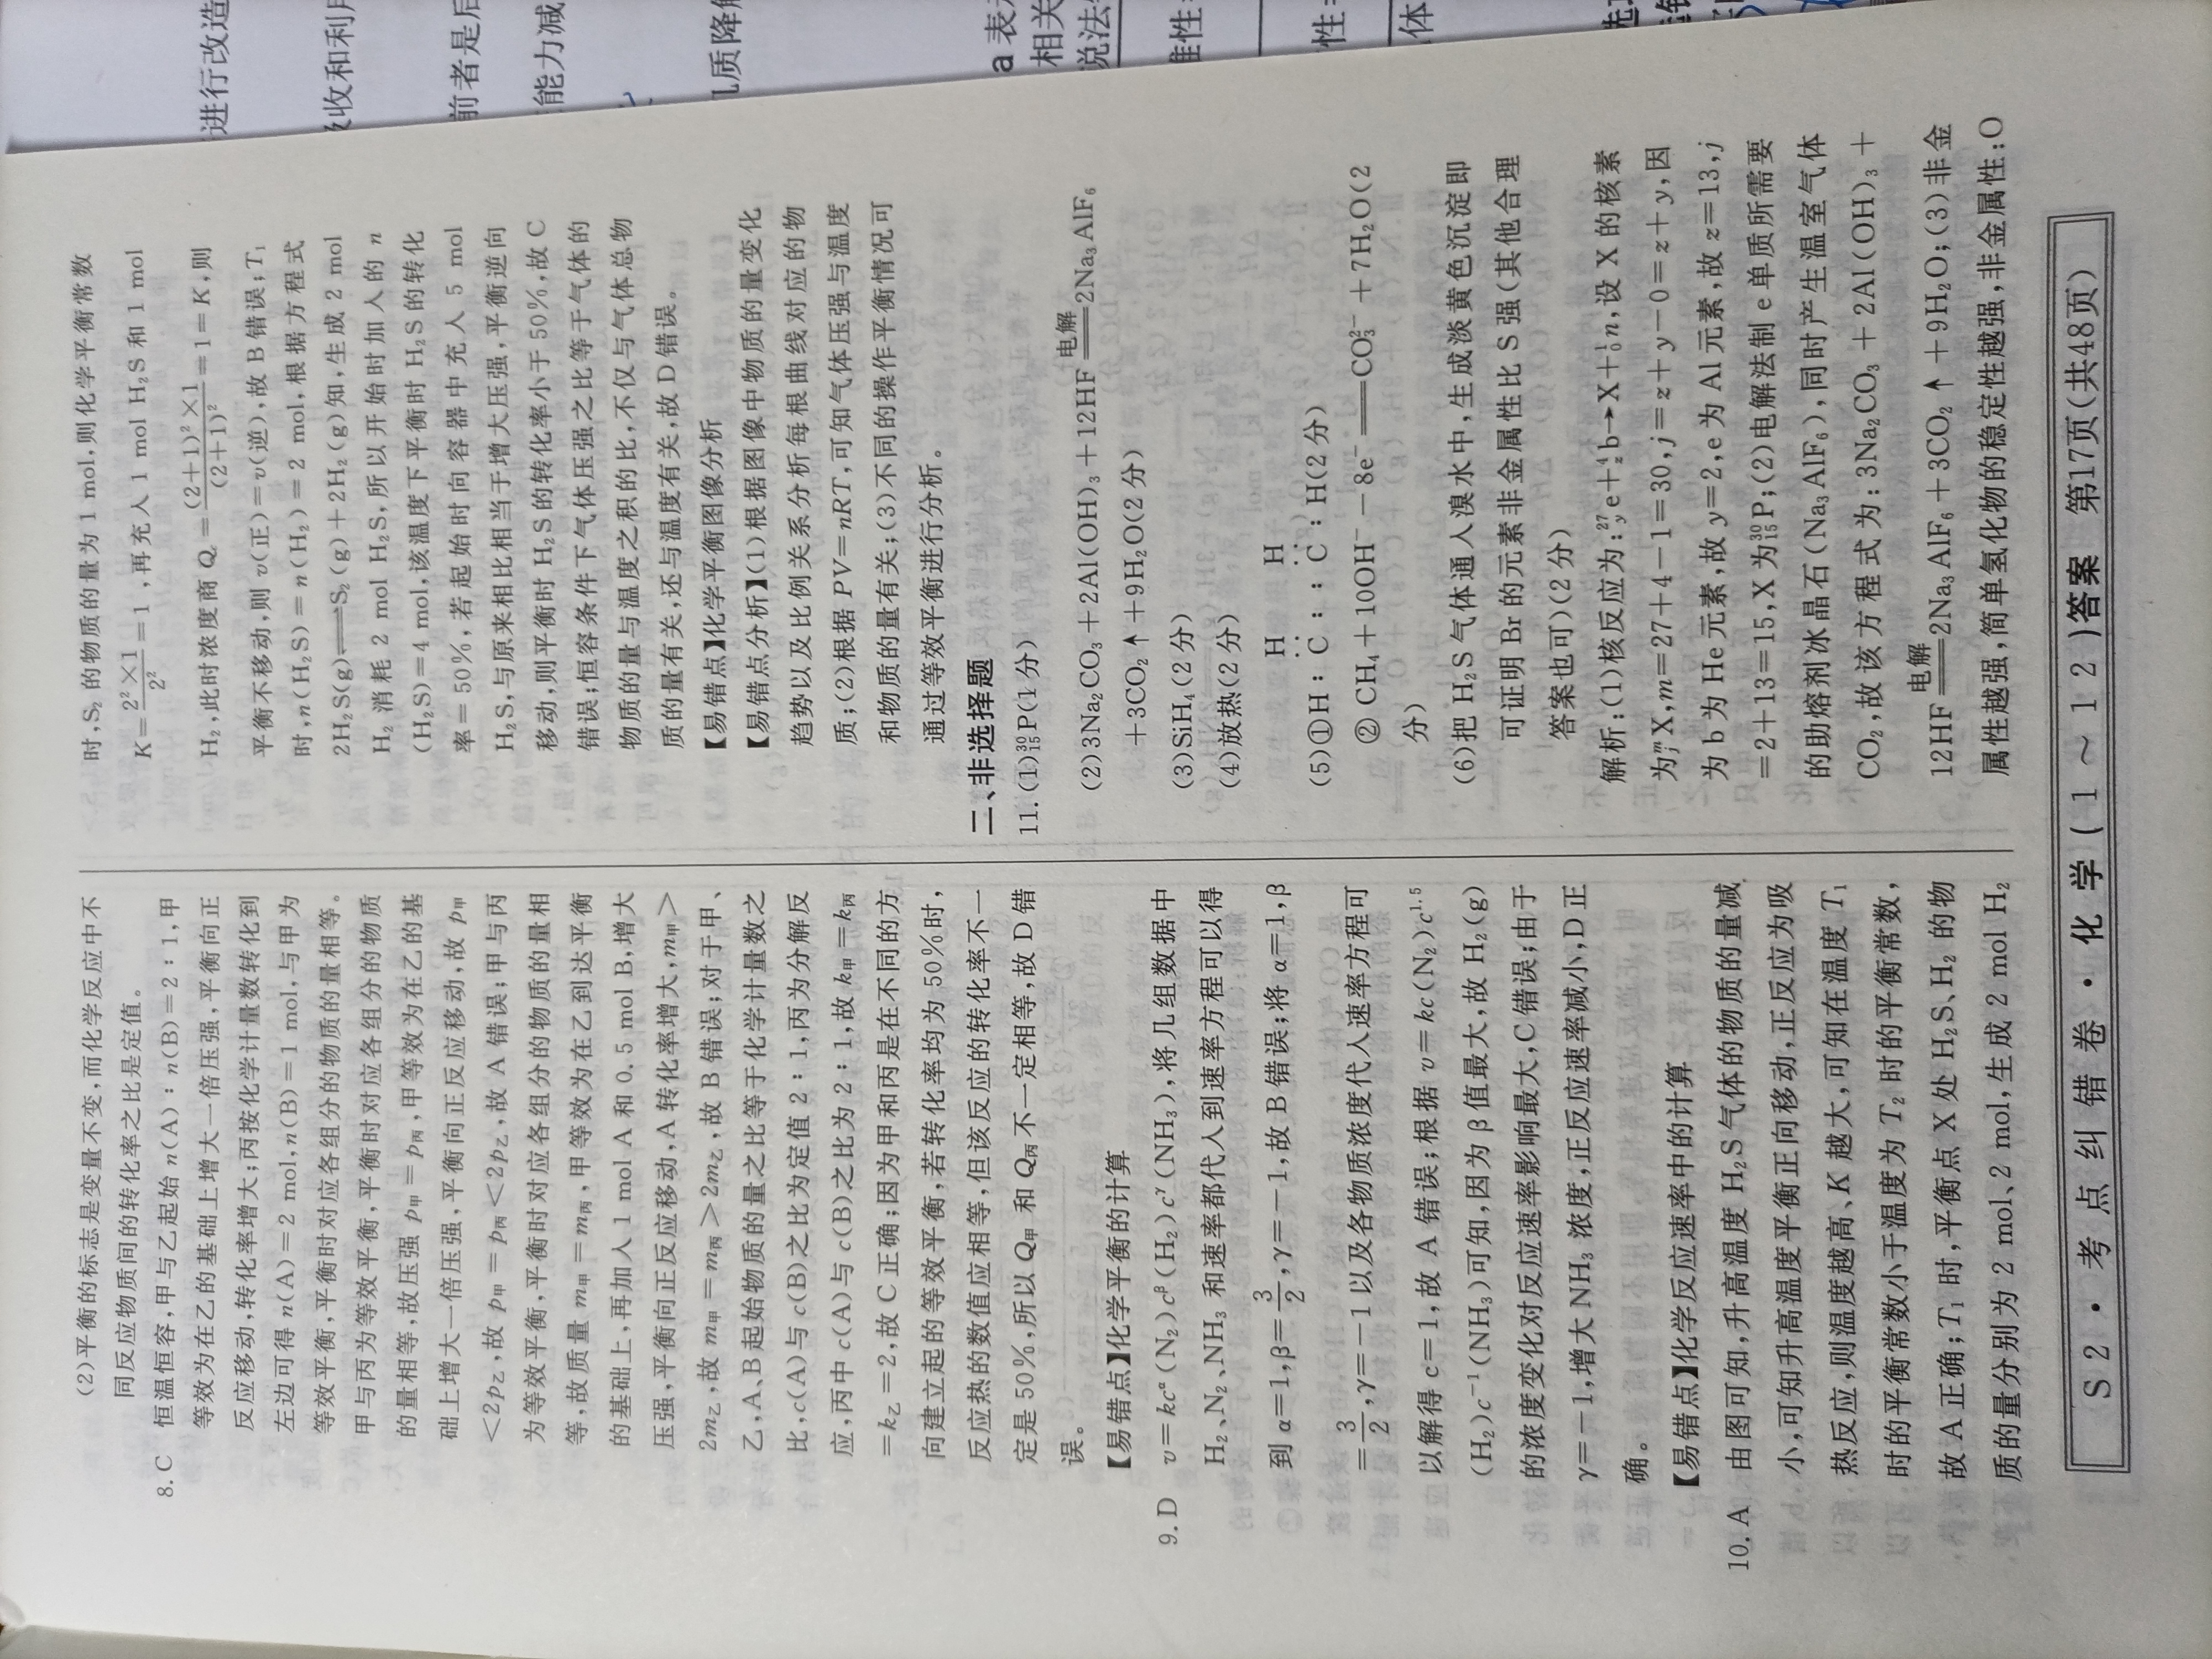 (2)平衡的标志是变量不变,而化学反应中不
同反应物质间的转化率之比是定值。
8.C 恒温恒容,甲与乙起始 n(A)∶n(B)=2∶1,甲
等效为在乙的基础上增大一倍压强,平衡向正
反应移动,转化率增大;丙按化学计量数转化到
左边可得 n(A)=2 mol,n(B)=1 mol,与甲为
等效平衡,平衡时对应各组分的物质的量相等。
甲与丙为等效平衡,平衡时对应各组分的物质
的量相等,故压强 p甲=p丙,甲等效为在乙的基
础上增大一倍压强,平衡向正反应移动,故 p甲
<2p乙,故 p甲=p丙<2p乙,故 A 错误;甲与丙
为等效平衡,平衡时对应各组分的物质的量相
等,故质量 m甲=m丙,甲等效为在乙到达平衡
的基础上,再加入 1 mol A 和 0.5 mol B,增大
压强,平衡向正反应移动,A 转化率增大,m甲>
2m乙,故 m甲=m丙>2m乙,故 B 错误;对于甲、
乙,A、B 起始物质的量之比等于化学计量数之
比,c(A)与 c(B)之比为定值 2∶1,丙为分解反
应,丙中 c(A)与 c(B)之比为 2∶1,故 k甲=k丙
=k乙=2,故 C 正确;因为甲和丙是在不同的方
向建立起的等效平衡,若转化率均为 50%时,
反应热的数值应相等,但该反应的转化率不一
定是 50%,所以 Q甲 和 Q丙 不一定相等,故 D 错
误。
【易错点】化学平衡的计算
9.D v=kc^α(N₂)c^β(H₂)c^γ(NH₃),将几组数据中
H₂、N₂、NH₃ 和速率都代入到速率方程可以得
到 α=1,β=3/2,γ=−1,故 B 错误;将 α=1,β
=3/2,γ=−1 以及各物质浓度代入速率方程可
以解得 c=1,故 A 错误;根据 v=kc(N₂)c^1.5
(H₂)c⁻¹(NH₃)可知,因为 β 值最大,故 H₂(g)
的浓度变化对反应速率影响最大,C 错误;由于
γ=−1,增大 NH₃ 浓度,正反应速率减小,D 正
确。
【易错点】化学反应速率中的计算
10.A 由图可知,升高温度 H₂S 气体的物质的量减
小,可知升高温度平衡正向移动,正反应为吸
热反应,则温度越高、K 越大,可知在温度 T₁
时的平衡常数小于温度为 T₂ 时的平衡常数,
故 A 正确;T₁ 时,平衡点 X 处 H₂S、H₂ 的物
质的量分别为 2 mol、2 mol,生成 2 mol H₂
时,S₂ 的物质的量为 1 mol,则化学平衡常数
K=2²×1/2²=1,再充入 1 mol H₂S 和 1 mol
H₂,此时浓度商 Qc=(2+1)²×1/(2+1)²=1=K,则
平衡不移动,则 v(正)=v(逆),故 B 错误;T₁
时,n(H₂S)=n(H₂)=2 mol,根据方程式
2H₂S(g)⇌S₂(g)+2H₂(g)知,生成 2 mol
H₂ 消耗 2 mol H₂S,所以开始时加入的 n
(H₂S)=4 mol,该温度下平衡时 H₂S 的转化
率=50%,若起始时向容器中充入 5 mol
H₂S,与原来相比相当于增大压强,平衡逆向
移动,则平衡时 H₂S 的转化率小于 50%,故 C
错误;恒容条件下气体压强之比等于气体的
物质的量与温度之积的比,不仅与气体总物
质的量有关,还与温度有关,故 D 错误。
【易错点】化学平衡图像分析
【易错点分析】(1)根据图像中物质的量变化
趋势以及比例关系分析每根曲线对应的物
质;(2)根据 PV=nRT,可知气体压强与温度
和物质的量有关;(3)不同的操作平衡情况可
通过等效平衡进行分析。
二、非选择题
11.(1)³⁰₁₅P(1 分)
(2)3Na₂CO₃+2Al(OH)₃+12HF 电解══2Na₃AlF₆
+3CO₂↑+9H₂O(2 分)
(3)SiH₄(2 分)
(4)放热(2 分)
H H
(5)①H∶C̈∶∶C̈∶H(2 分)
② CH₄+10OH⁻−8e⁻══CO₃²⁻+7H₂O(2
分)
(6)把 H₂S 气体通入溴水中,生成淡黄色沉淀即
可证明 Br 的元素非金属性比 S 强(其他合理
答案也可)(2 分)
解析:(1)核反应为:²⁷ᵧe+⁴zb→X+¹₀n,设 X 的核素
为ᵐⱼX,m=27+4−1=30,j=z+y−0=z+y,因
为 b 为 He 元素,故 y=2,e 为 Al 元素,故 z=13,j
=2+13=15,X 为³⁰₁₅P;(2)电解法制 e 单质所需要
的助熔剂冰晶石(Na₃AlF₆),同时产生温室气体
CO₂,故该方程式为:3Na₂CO₃+2Al(OH)₃+
12HF 电解══2Na₃AlF₆+3CO₂↑+9H₂O;(3)非金
属性越强,简单氢化物的稳定性越强,非金属性:O
S2·考点纠错卷·化学(1~12)答案 第17页(共48页)
进行改造
收和利用
前者是后
能力减
质降解
a 表
相关
说法
性
体